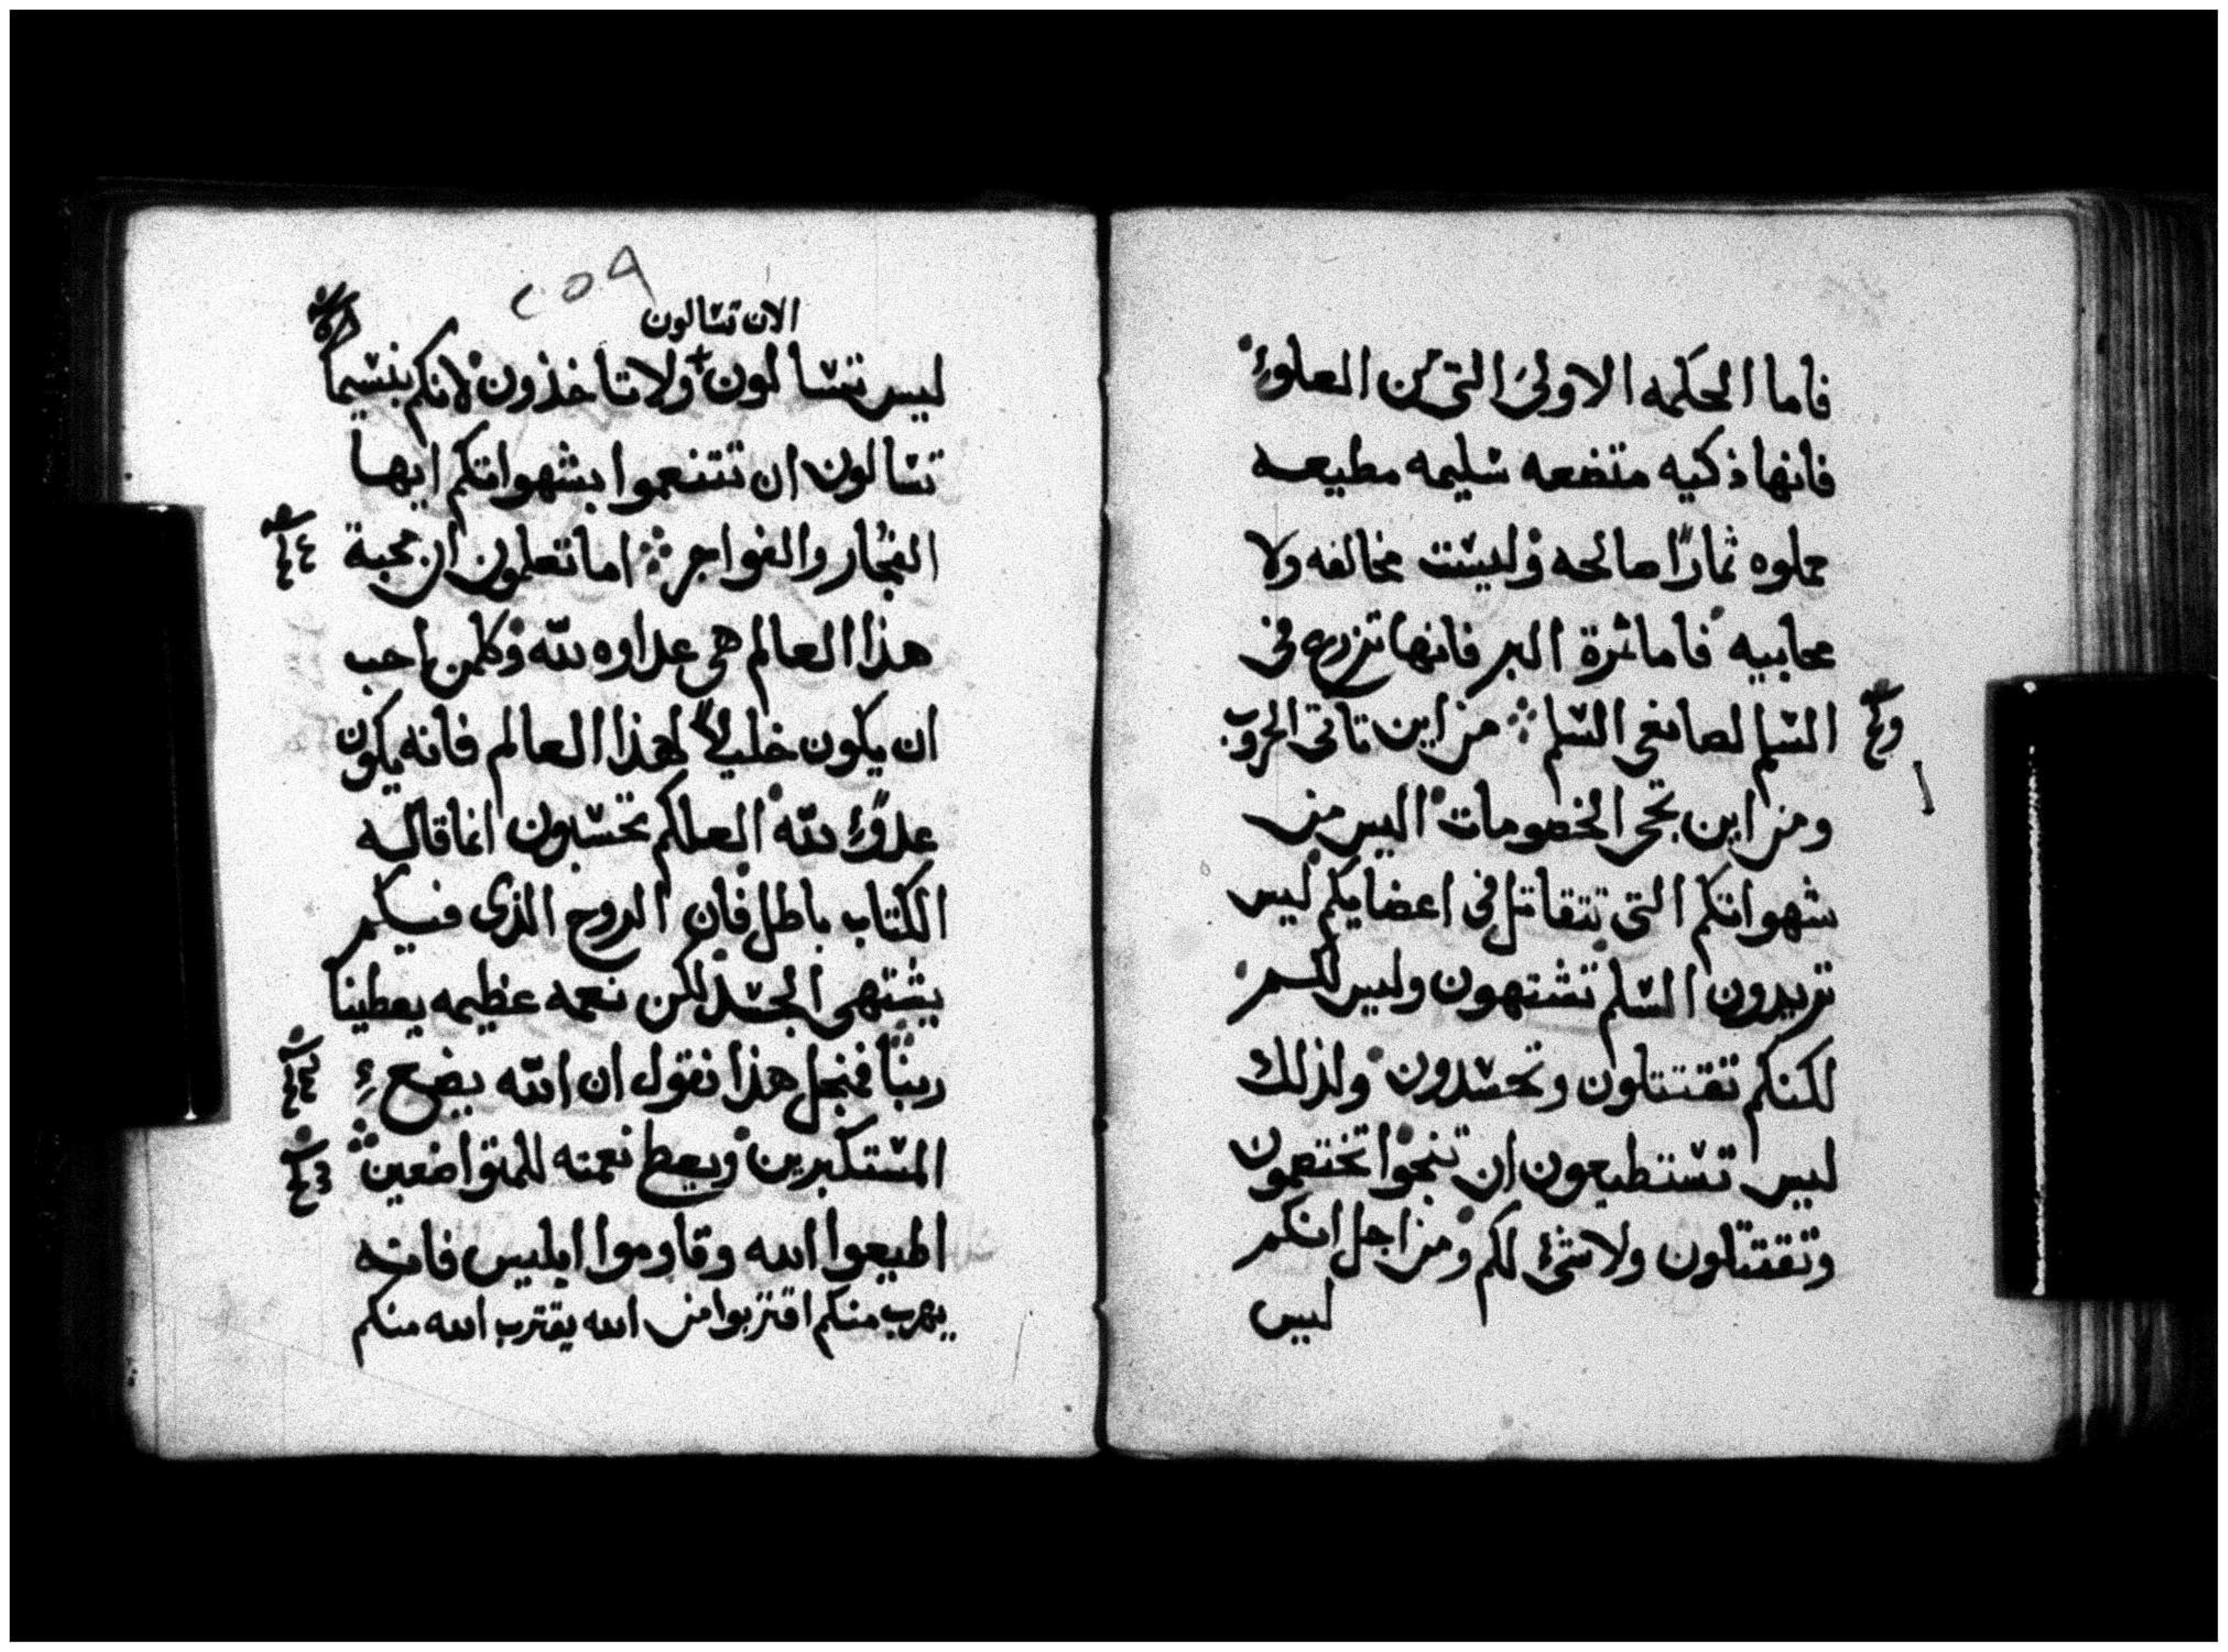 فاما الحكمه الاولى التى من العلوء
فانها ذكيه متضعه سليمه مطيعه
مملوه ثمارًا صالحه وليست مخالفه ولا
محابيه فاما ثمرة البر فانها تزرع فى
السلم لصانعى السلم من اين تاتى الحروب
ومن اين تجى الخصومات اليس من
شهواتكم التى تتقاتل فى اعضايكم ليس
تريدون السلم تشتهون وليس لكم
لكنكم تقتتلون وتحسدون ولذلك
ليس تستطيعون ان تنجوا تختصمون
وتقتتلون ولا شئ لكم ومن اجل انكم
ليس
٢٥٩
الان تسالون
ليس تسالون ولا تاخذون لانكم بئسيما
تسالون ان تتنعموا بشهواتكم ايها
الفجار والفواجر اما تعلمون ان محبة
هذا العالم هى عداوه لله وكلمن احب
ان يكون خليلاً لهذا العالم فانه يكون
عدوًا لله العلكم تحسبون انما قاله
الكتاب باطل فان الروح الذى فيكم
يشتهى الجسد لكن نعمه عظيمه يعطينا
ربنا فمنجل هذا نقول ان الله يضع
المستكبرين ويعط نعمته للمتواضعين
اطيعوا الله وقاوموا ابليس فانه
يهرب منكم اقتربوا من الله يقترب الله منكم